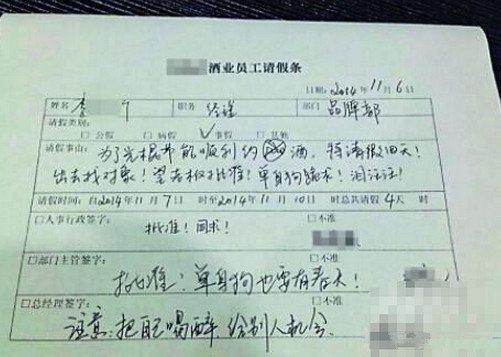 酒业员工请假条
日期:2014年11月6日
姓名 李 职务 经理 部门 品牌部
请假类别:
□公假 □病假 ☑事假 □其他
请假事由:为了光棍节能顺利约酒,特请假四天!
出去找对象!望老板批准!单身狗跪求!泪汪汪!
请假时间:自2014年11月7日 时至2014年11月10日 时总共请假4天 时
□人事行政签字: 批准!同求! □不准
□部门主管签字: □不准
批准!单身狗也要有春天!
□总经理签字: □不准
注意:把自己喝醉 给别人机会.